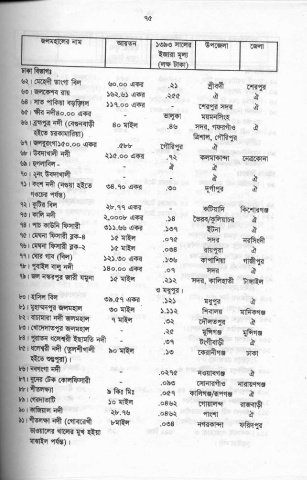 ৭৫
জলমহালের নাম আয়তন ১৩৯৩ সালের ইজারা মূল্য (লক্ষ টাকা) উপজেলা জেলা
ঢাকা বিভাগঃ
৬২। মেহেদী ডাংগা বিল ৬০.০০ একর .২১ শ্রীবর্দী শেরপুর
৬৩। জলকেশর রায় ১৬২.৬১ একর .২৫৫ ঐ ঐ
৬৪। সাত পাকিয়া বড়বিলা ১১৭.০০ একর - শেরপুর সদর ঐ
৬৫। ক্ষীর নদী ৪০.০০ একর - ভালুকা ময়মনসিংহ
৬৬। ব্রহ্মপুত্র নদী (বেগুনবাড়ী ৪০ মাইল .৪৬ সদর, গফরগাঁও ঐ
হইতে চরকামারিয়া) ত্রিশাল, গৌরীপুর
৬৭। জলবুরুংগা ১৫০.০০ একর .৫৮৮ গৌরিপুর ঐ
৬৮। উবদাখালী নদী ২১৫.০০ একর .৭২ কলমাকান্দা নেত্রকোনা
৬৯। ছগলাবিল - ঐ ঐ
৭০। ২নং উবদাখালী - ঐ ঐ
৭১। কংশ নদী (নওয়া হইতে ৩৪.৭০ একর .৩০ দূর্গাপুর ঐ
৭২। কুটির বিল ২৮.৭৭ একর - কটিয়াদি কিশোরগঞ্জ
৭৩। কালি নদী ২,০০০৮ একর .১৪ ভৈরব/কুলিয়াচর ঐ
৭৪। পাচ কাউনি ফিসারী ৩১১.৬৬ একর .১৩৭ ইটনা ঐ
৭৫। মেঘনা ফিসারী ব্লক-৪ ১৫ মাইল .০৭৫ সদর নরসিংদী
৭৬। মেঘনা ফিসারী ব্লক-২ ১৫ মাইল .০৩৪ রায়পুরা ঐ
৭৭। ঘোর গাব (বিল) ১২১.৩০ একর .১৩৬ কাপাশিয়া গাজীপুর
৭৮। পুরাইল বালু নদী ১৪০.০০ একর .০৭ সদর ঐ
৭৯। জল নস্করপুর জারী যমুনা ১৫ মাইল .২১২ সদর, কালিহাতী টাঙ্গাইল
ও মধুপুর।
৮০। হাসিল বিল ৩৯.৫৭ একর .১২১ মধুপুর ঐ
৮১। মুহাম্মদপুর জলমহাল ৩০ মাইল ১.১১২ শিবালয় মানিকগঞ্জ
৮২। বাচামারা নদী জলমহাল ৭ মাইল .৩২ দৌলতপুর ঐ
৮৩। খোদেদাতপুর জলমহাল .২৫ মুন্সিগঞ্জ মুন্সিগঞ্জ
৮৪। পুরাতন ধলেশ্বরী ইছামতি নদী .৩৭ টংগীবাড়ী ঐ
৮৫। ধলেশ্বরী নদী (তুলশীখালী ৯০ মাইল .১৩ কেরানীগঞ্জ ঢাকা
৮৬। নবগংগা নদী .০২৭৫ নওয়াবগঞ্জ ঐ
৮৭। দুনের টেক কোলফিসারী .০৯৩ সোনারগাঁও নারায়ণগঞ্জ
৮৮। শীতলক্ষ্যা ৯ কিঃ মিঃ .০৫৭ কালিগঞ্জ/রূপগঞ্জ ঐ
৮৯। গেরদাভাটি ১০ মাইল .০৪৬২ গোয়ালন্দ রাজবাড়ী
৯০। কাজিয়াল নদী ২৮.৭৬ .০৪৬২ পাংশা ঐ
৯১। শীতলক্ষা নদী (গোবরেখী ৮মাইল .০৩৪ নগরকান্দা ফরিদপুর